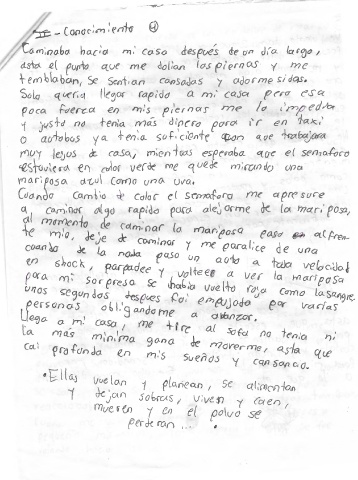 II - Conocimiento 4
Caminaba hacia mi casa después de un día largo,
asta el punto que me dolian las piernas y me
temblaban, se sentian cansadas y adormesidas.
Solo queria llegar rapido a mi casa pero esa
poca fuerza en mis piernas me lo impedia
y justo no tenia más dinero para ir en taxi
o autobos ya tenia suficiente con que trabajara
muy lejos de casa, mientras esperaba que el semaforo
estuviera en color verde me quede mirando una
mariposa azul como una uva.
Cuando cambio de color el semaforo me apresure
a caminar algo rapido para alejarme de la mariposa,
al momento de caminar la mariposa paso en alfren
te mio, deje de caminar y me paralice de una
cuando de la nada paso un auto a toda velocidad
en shock, parpadee y voltee a ver la mariposa
para mi sorpresa se había vuelto roja como la sangre
unos segundos despues fui empujada por varias
personas obligandome a avanzar.
Llega a mi casa, me tire al sofa no tenia ni
la más minima gana de moverme, asta que
cai profunda en mis sueños y cansancio.
• Ellas vuelan y planean, se alimentan
y dejan sobras, viven y caen,
mueren y en el polvo se
perderan... •